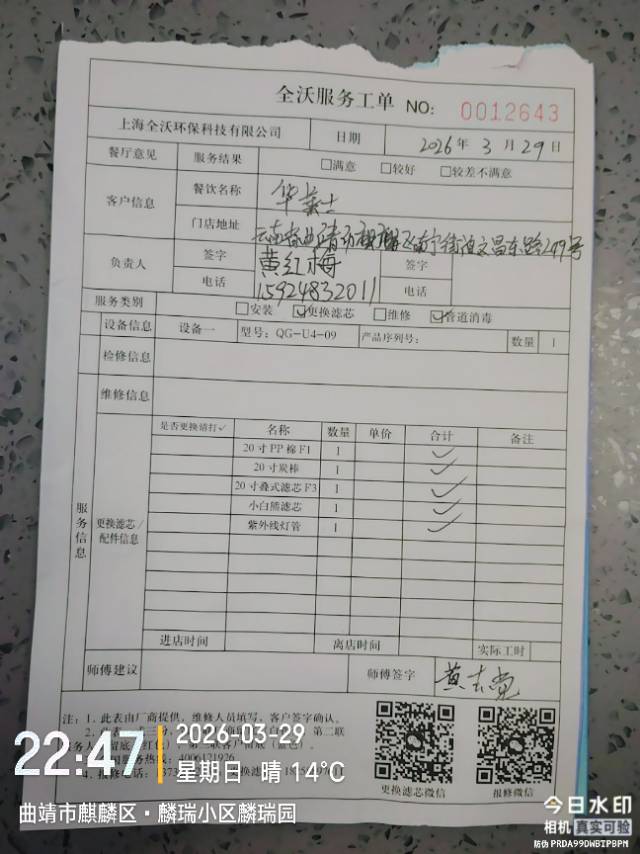 全沃服务工单 NO: 0012643
上海全沃环保科技有限公司 日期 2026年 3月 29日
餐厅意见 服务结果 □满意 □较好 □较差不满意
客户信息 餐饮名称 华莱士
门店地址 云南省曲靖市麒麟区南宁街道文昌东路249号
负责人 签字 黄红梅 签字
电话 15924832011 电话
服务类别 □安装 ☑更换滤芯 □维修 ☑管道消毒
设备信息 设备一 型号: QG-U4-09 产品序列号: 数量 1
检修信息
维修信息
服务信息
更换滤芯/配件信息
是否更换请打✓ 名称 数量 单价 合计 备注
20寸PP棉F1 1 ✓
20寸炭棒 1 ✓
20寸叠式滤芯F3 1 ✓
小白熊滤芯 1 ✓
紫外线灯管 1 ✓
进店时间 离店时间 实际工时
师傅建议 师傅签字
注: 1、此表由厂商提供, 维修人员填写, 客户签字确认。
第二联
服务热线: 4006121926
更换滤芯微信 报修微信
22:47
2026-03-29
星期日 晴 14℃
曲靖市麒麟区·麟瑞小区麟瑞园
今日水印
相机 真实可验
防伪 PRDA99DWBTPBPM